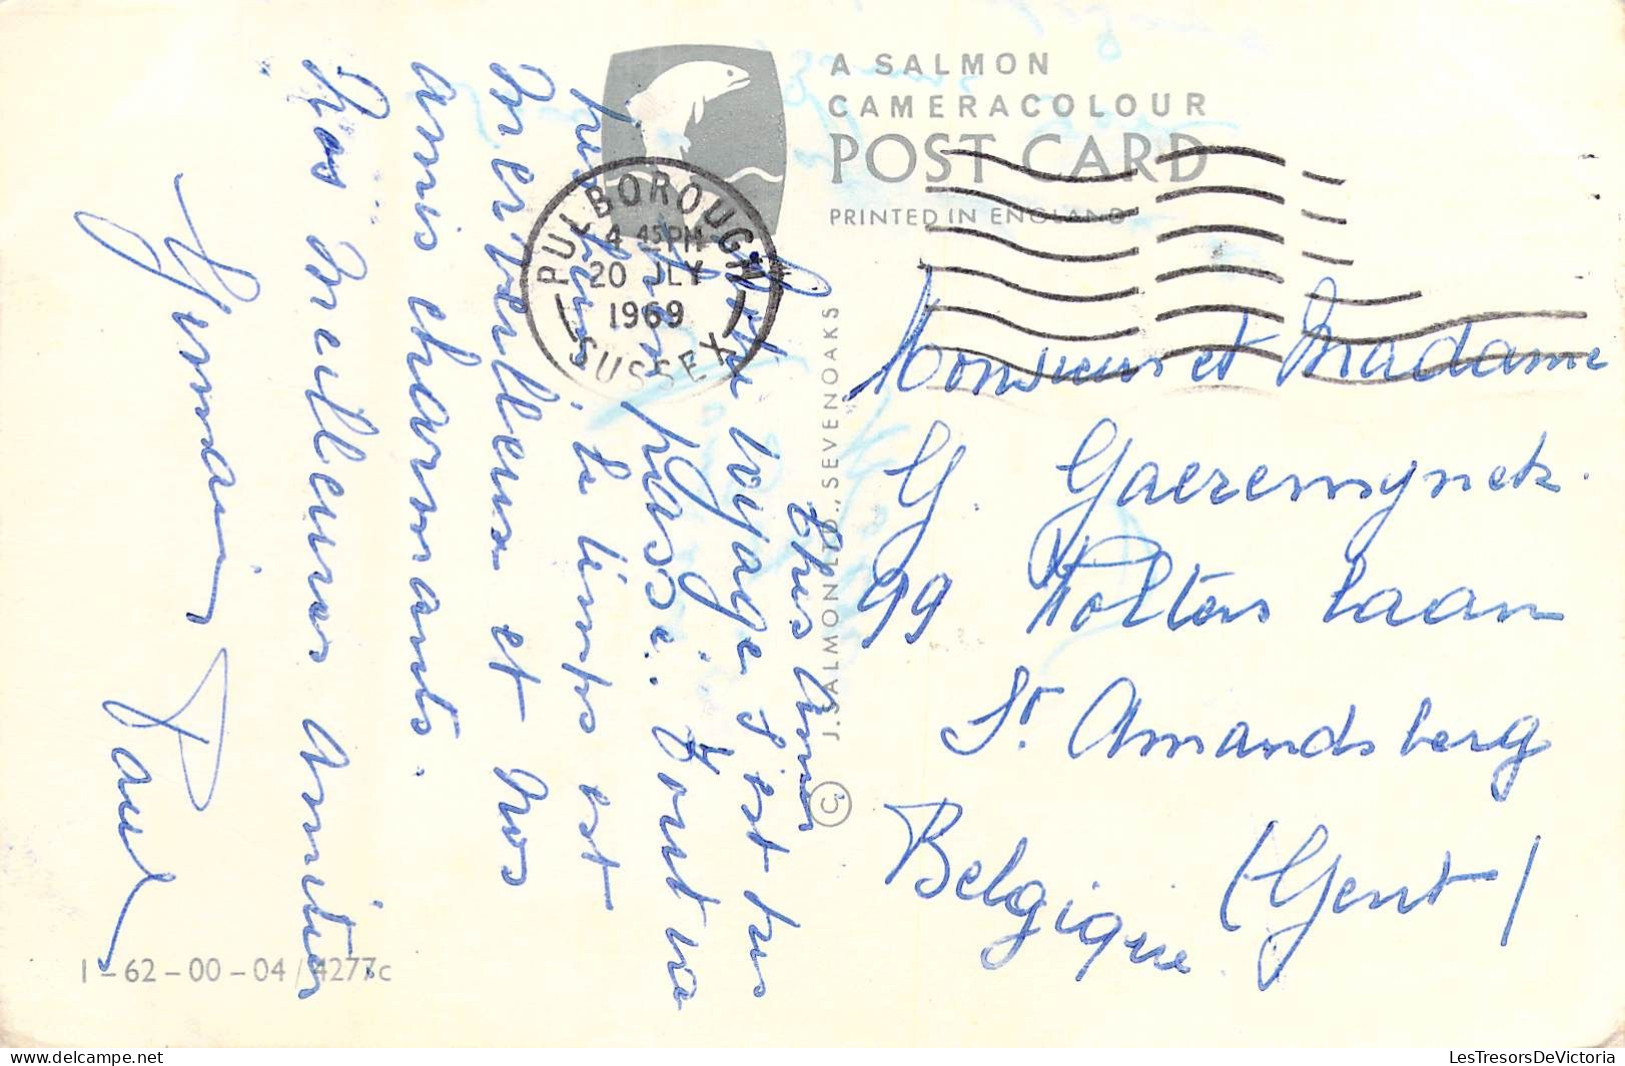 A SALMON
CAMERACOLOUR
POST CARD
PRINTED IN ENGLAND
PULBOROUGH
4 45 PM
20 JLY
1969
SUSSEX
© J. SALMON LTD., SEVENOAKS
1-62-00-04/4277c
Chers Amis
Notre voyage s'est très
bien passé. Tout va
très bien, le temps est
merveilleux et nos
amis charmants.
Nos meilleures amitiés
Germain
Paul
Monsieur et Madame
G. Gaeremynck.
99 laan
St. Amandsberg
Belgique (Gent)
LesTresorsDeVictoria
www.delcampe.net